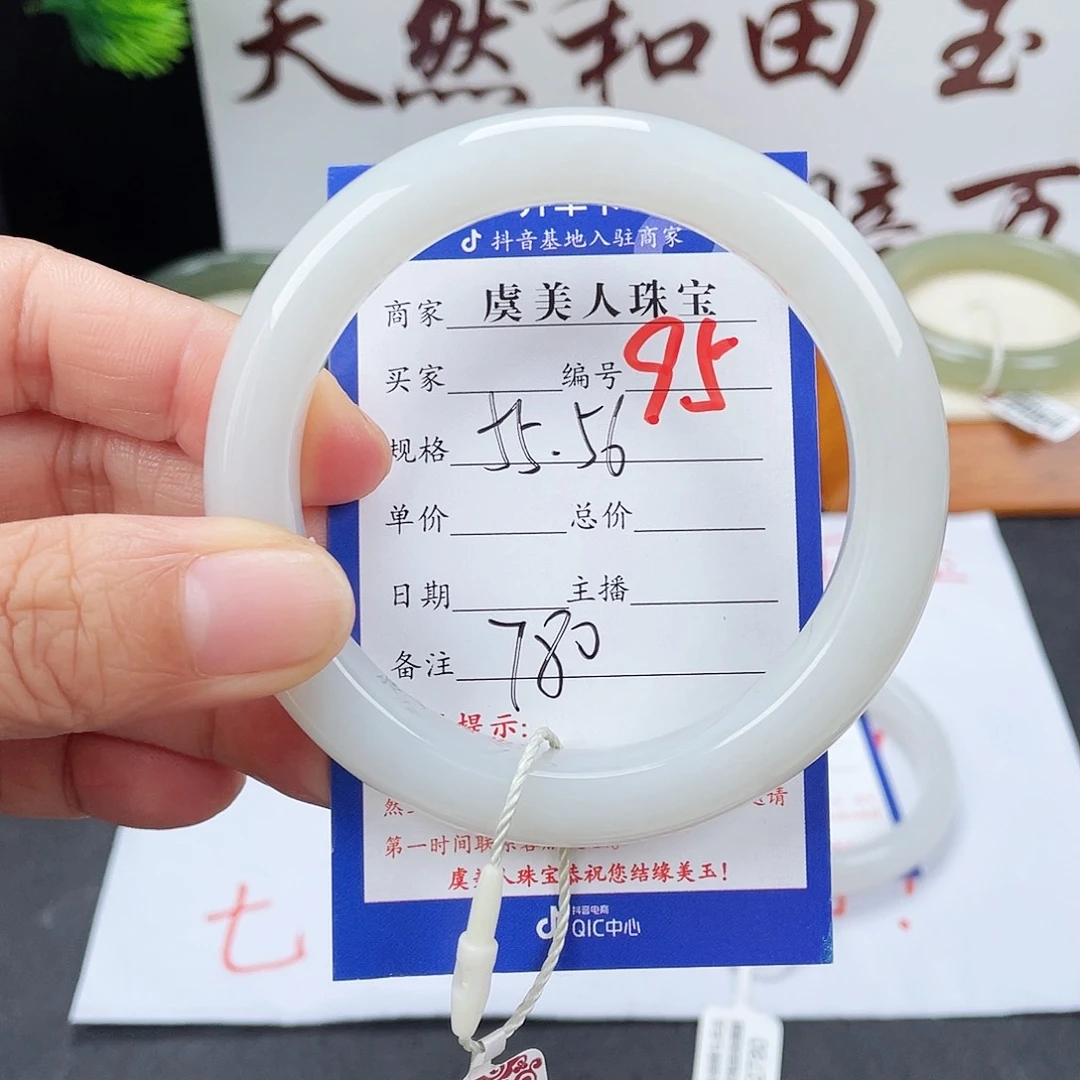 天然和田玉
万
抖音基地入驻商家
商家 虞美人珠宝
买家 编号 95
规格 55.56
单价 总价
日期 主播
备注 780
提示:
第一时间联
虞美人珠宝恭祝您结缘美玉!
抖音电商
QIC中心
七